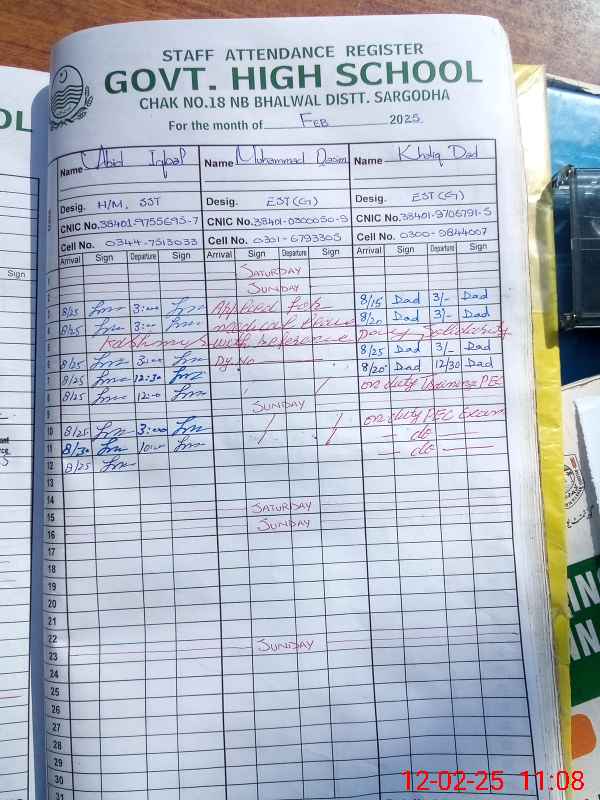 STAFF ATTENDANCE REGISTER
GOVT. HIGH SCHOOL
CHAK NO.18 NB BHALWAL DISTT. SARGODHA
For the month of FEB 2025
Name Abid Iqbal Name Muhammad Qasim Name Khaliq Dad
Desig. H/M, SST Desig. EST(G) Desig. EST(G)
CNIC No. 38401-9755695-7 CNIC No. 38401-0300050-9 CNIC No. 38401-9706791-5
Cell No. 0344-7513033 Cell No. 0301-6793305 Cell No. 0300-9844007
Arrival Sign Departure Sign Arrival Sign Departure Sign Arrival Sign Departure Sign
1 SATURDAY
2 SUNDAY
3 8/25 3:00 Applied for 8/15 Dad 3/- Dad
4 8/25 3:00 medical 8/20 Dad 3/- Dad
5 Kashmir with reference Solidarity
6 8/25 3:00 Dy No 8/25 Dad 3/- Dad
7 8/25 12:30 8/20 Dad 12/30 Dad
8 8/25 12:00 on duty Training PEC
9 SUNDAY
10 8/25 3:00 on duty PEC Exam
11 8/30 10:00 = do =
12 8/25 = do =
13
14
15 SATURDAY
16 SUNDAY
17
18
19
20
21
22
23 SUNDAY
24
25
26
27
28
29
30
31
OL
Sign
12-02-25 11:08